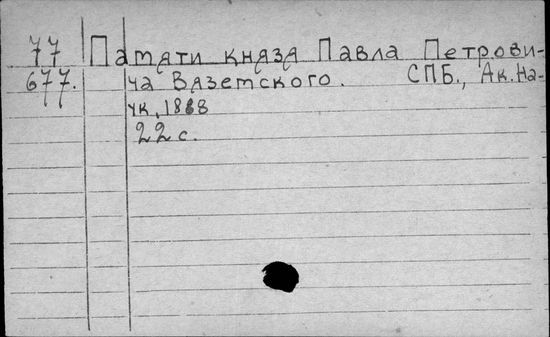 77 Памяти князя Павла Петрови-
677. ча Вяземского. СПБ., Ак. На-
ук, 1888
22 с.